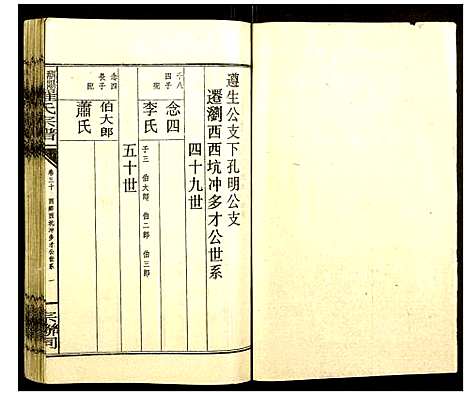 遵生公支下孔明公支
遷瀏西西坑冲多才公世系
四十九世
千八
四子
念四
配
李氏
子三 伯大郎 伯二郎 伯三郎
五十世
念四
長子
伯大郎
配
蕭氏
氏宗譜
卷三十 西鄉西坑冲多才公世系 一
宗聯司